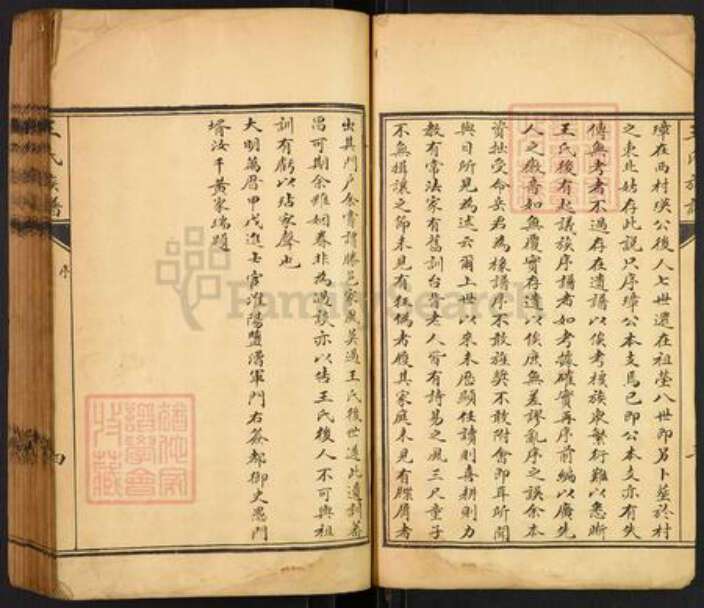 璋在西村瑛公後人七世還在祖塋八世即另卜塋於村
之東北姑存此說只序璋公本支焉已即公本支亦有失
傳無考者不過存在遺譜以俟考核族眾繁衍難以悉晰
王氏後有起議族序譜者如考據確實再序前編以廣先
人之徽音如無覆實存遺以俟庶無差謬亂序之誤余本
資拙受命岳君為撰譜序不敢旌獎不敢附會即耳所聞
與目所見為述云爾上世以來未歷顯任讀則喜耕則力
教有常法家有舊訓台背老人胥有詩易之風三尺童子
不無揖讓之節未見有狂偽者從其家庭未見有牒屑者
出其門戶余嘗謂勝邑家風莫過王氏後世遵此遺訓蕃
昌可期余雖姻眷非為過諛亦以告王氏後人不可與祖
訓有虧以玷家聲也
大明萬曆甲戌進士官淮陽鹽漕軍門右僉都御史愚門
壻汝千黃家瑞題
王氏族譜
序
王氏族譜
FamilySearch